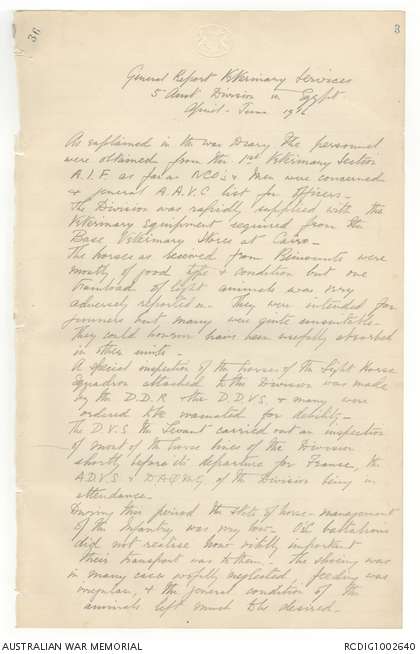 36
3
General Report Veterinary Services
5 Aust Division in Egypt
April - June 1916
As explained in the War Diary the personnel
were obtained from the 1st Veterinary Section
A.I.F. as far as NCO's & Men were concerned
& general A.A.V.C list for Officers.
The Division was rapidly supplied with the
Veterinary Equipment required from the
Base Veterinary Stores at Cairo-
The horses as received from Remounts were
mostly of good type & condition but one
trainload of light animals was very
adversely reported on. They were intended for
gunners but many were quite unsuitable-
They could however have been usefully absorbed
in other units-
A special inspection of the horses of the Light Horse
Squadron attached to the Division was made
by the D.D.R & the D.D.V.S. & many were
ordered to be evacuated for debility-
The D.V.S. the Levant carried out an inspection
of most of the horse lines of the Division
shortly before its departure for France, the
A.D.V.S & D.A.Q.M.G, of the Division being in
attendance-
During this period the state of horse-management
of the Infantry was very low- O.C. battalions
did not realise how vitally important
their transport was to them. - The shoeing was
in many cases wofully neglected, feeding was
irregular, & the general condition of the
animals left much to be desired-
AUSTRALIAN WAR MEMORIAL
RCDIG1002640